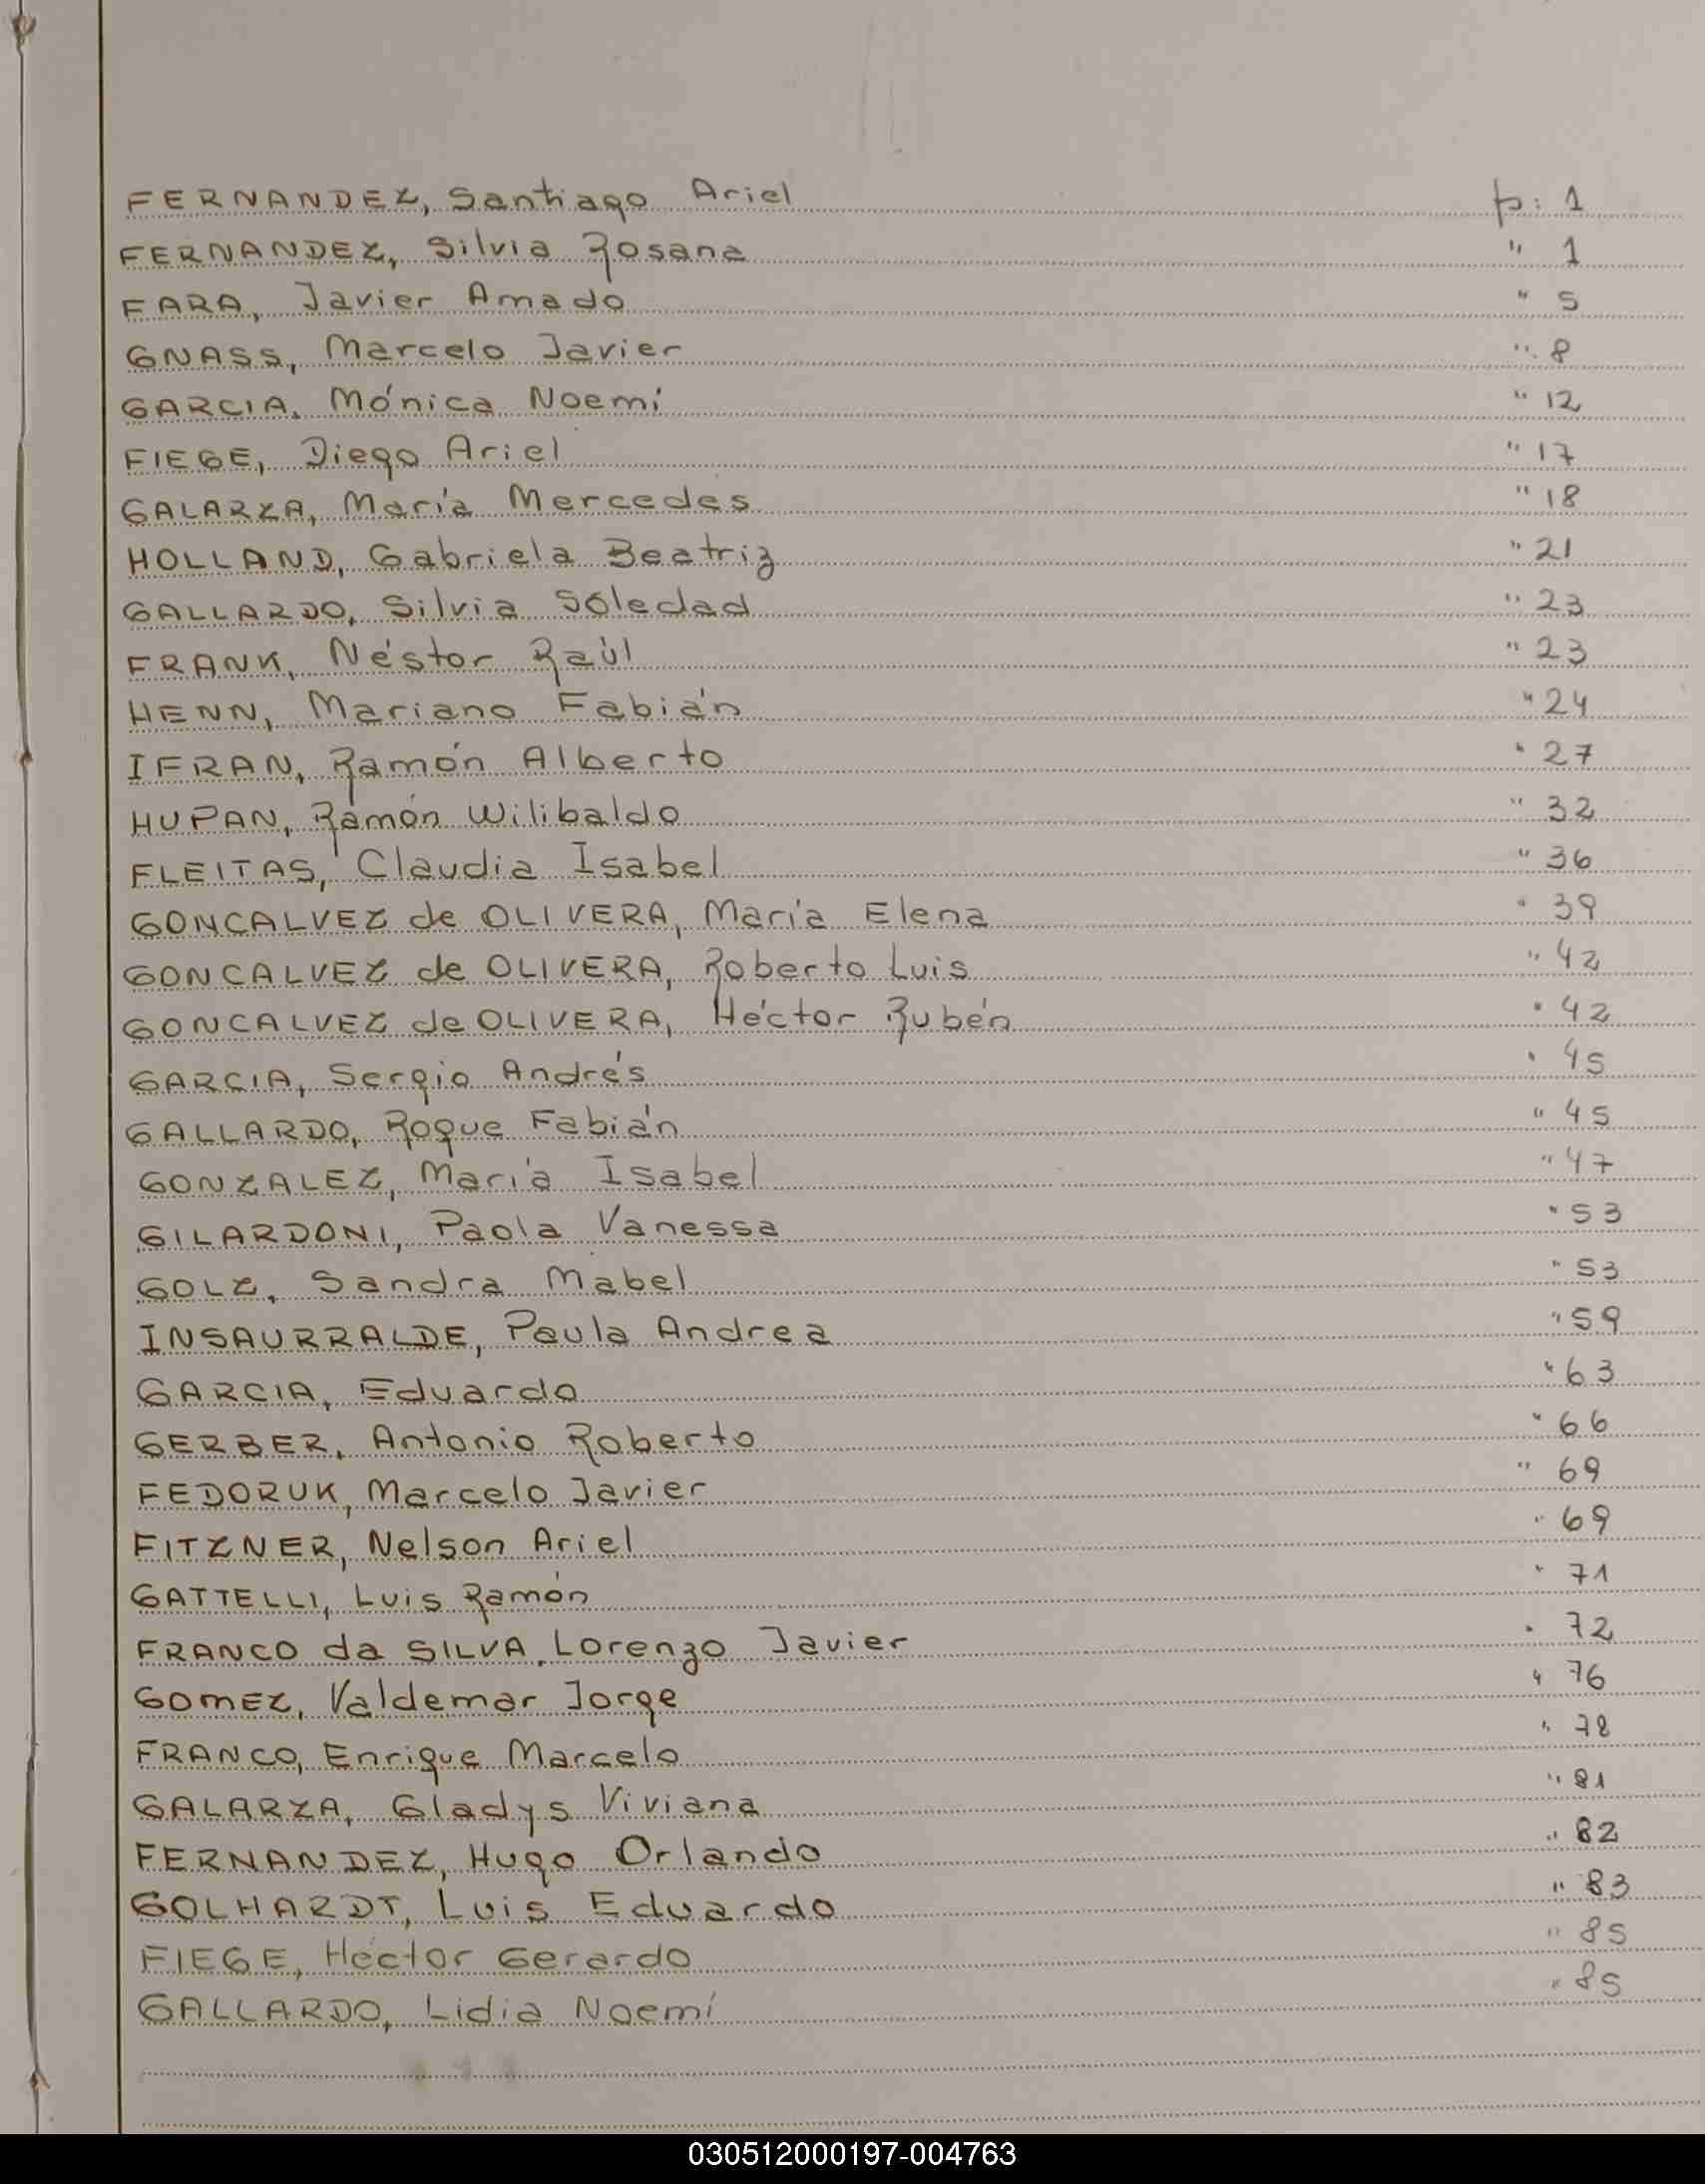 FERNANDEZ, Santiago Ariel p: 1
FERNANDEZ, Silvia Rosana " 1
FARA, Javier Amado " 5
GNASS, Marcelo Javier " 8
GARCIA, Mónica Noemí " 12
FIEGE, Diego Ariel " 17
GALARZA, María Mercedes " 18
HOLLAND, Gabriela Beatriz " 21
GALLARDO, Silvia Soledad " 23
FRANK, Néstor Raúl " 23
HENN, Mariano Fabián " 24
IFRAN, Ramón Alberto " 27
HUPAN, Ramón Wilibaldo " 32
FLEITAS, Claudia Isabel " 36
GONCALVEZ de OLIVERA, María Elena " 39
GONCALVEZ de OLIVERA, Roberto Luis " 42
GONCALVEZ de OLIVERA, Héctor Rubén " 42
GARCIA, Sergio Andrés " 45
GALLARDO, Roque Fabián " 45
GONZALEZ, María Isabel " 47
GILARDONI, Paola Vanessa " 53
GOLZ, Sandra Mabel " 53
INSAURRALDE, Paula Andrea " 59
GARCIA, Eduardo " 63
GERBER, Antonio Roberto " 66
FEDORUK, Marcelo Javier " 69
FITZNER, Nelson Ariel " 69
GATTELLI, Luis Ramón " 71
FRANCO da SILVA, Lorenzo Javier " 72
GOMEZ, Valdemar Jorge " 76
FRANCO, Enrique Marcelo " 78
GALARZA, Gladys Viviana " 81
FERNANDEZ, Hugo Orlando " 82
GOLHARDT, Luis Eduardo " 83
FIEGE, Héctor Gerardo " 85
GALLARDO, Lidia Noemí " 85
030512000197-004763